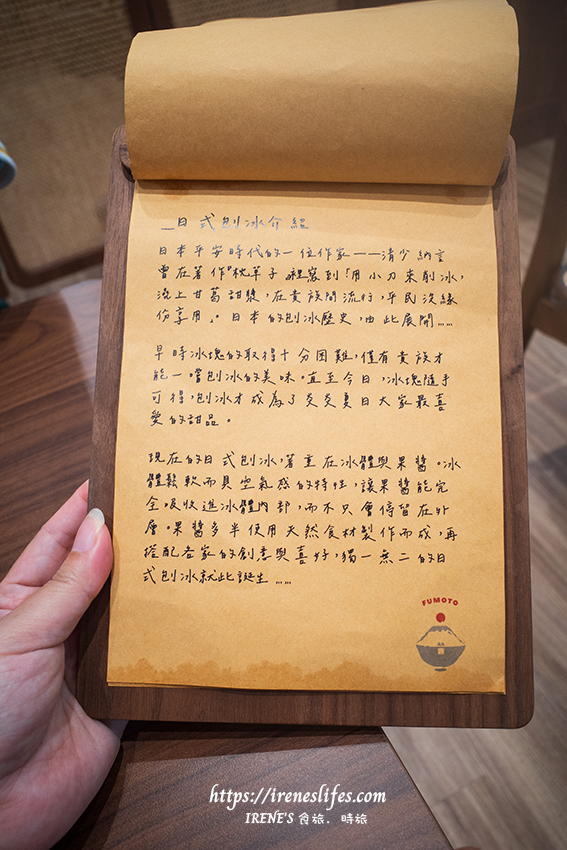 日式刨冰介紹
日本平安時代的一位作家——清少納言
曾在著作『枕草子』裡寫到「用小刀來削冰，
澆上甘葛甜漿，在貴族間流行，平民沒緣
份享用」。日本的刨冰歷史，由此展開……
早時冰塊的取得十分困難，僅有貴族才
能一嚐刨冰的美味。直至今日，冰塊隨手
可得，刨冰才成為了炎炎夏日大家最喜
愛的甜品。
現在的日式刨冰，著重在冰體與果醬。冰
體鬆軟而具空氣感的特性，讓果醬能完
全吸收進冰體內部，而不只會停留在外
層。果醬多半使用天然食材製作而成，再
搭配各家的創意與喜好，獨一無二的日
式刨冰就此誕生……
FUMOTO
https://ireneslifes.com
IRENE'S 食旅．時旅